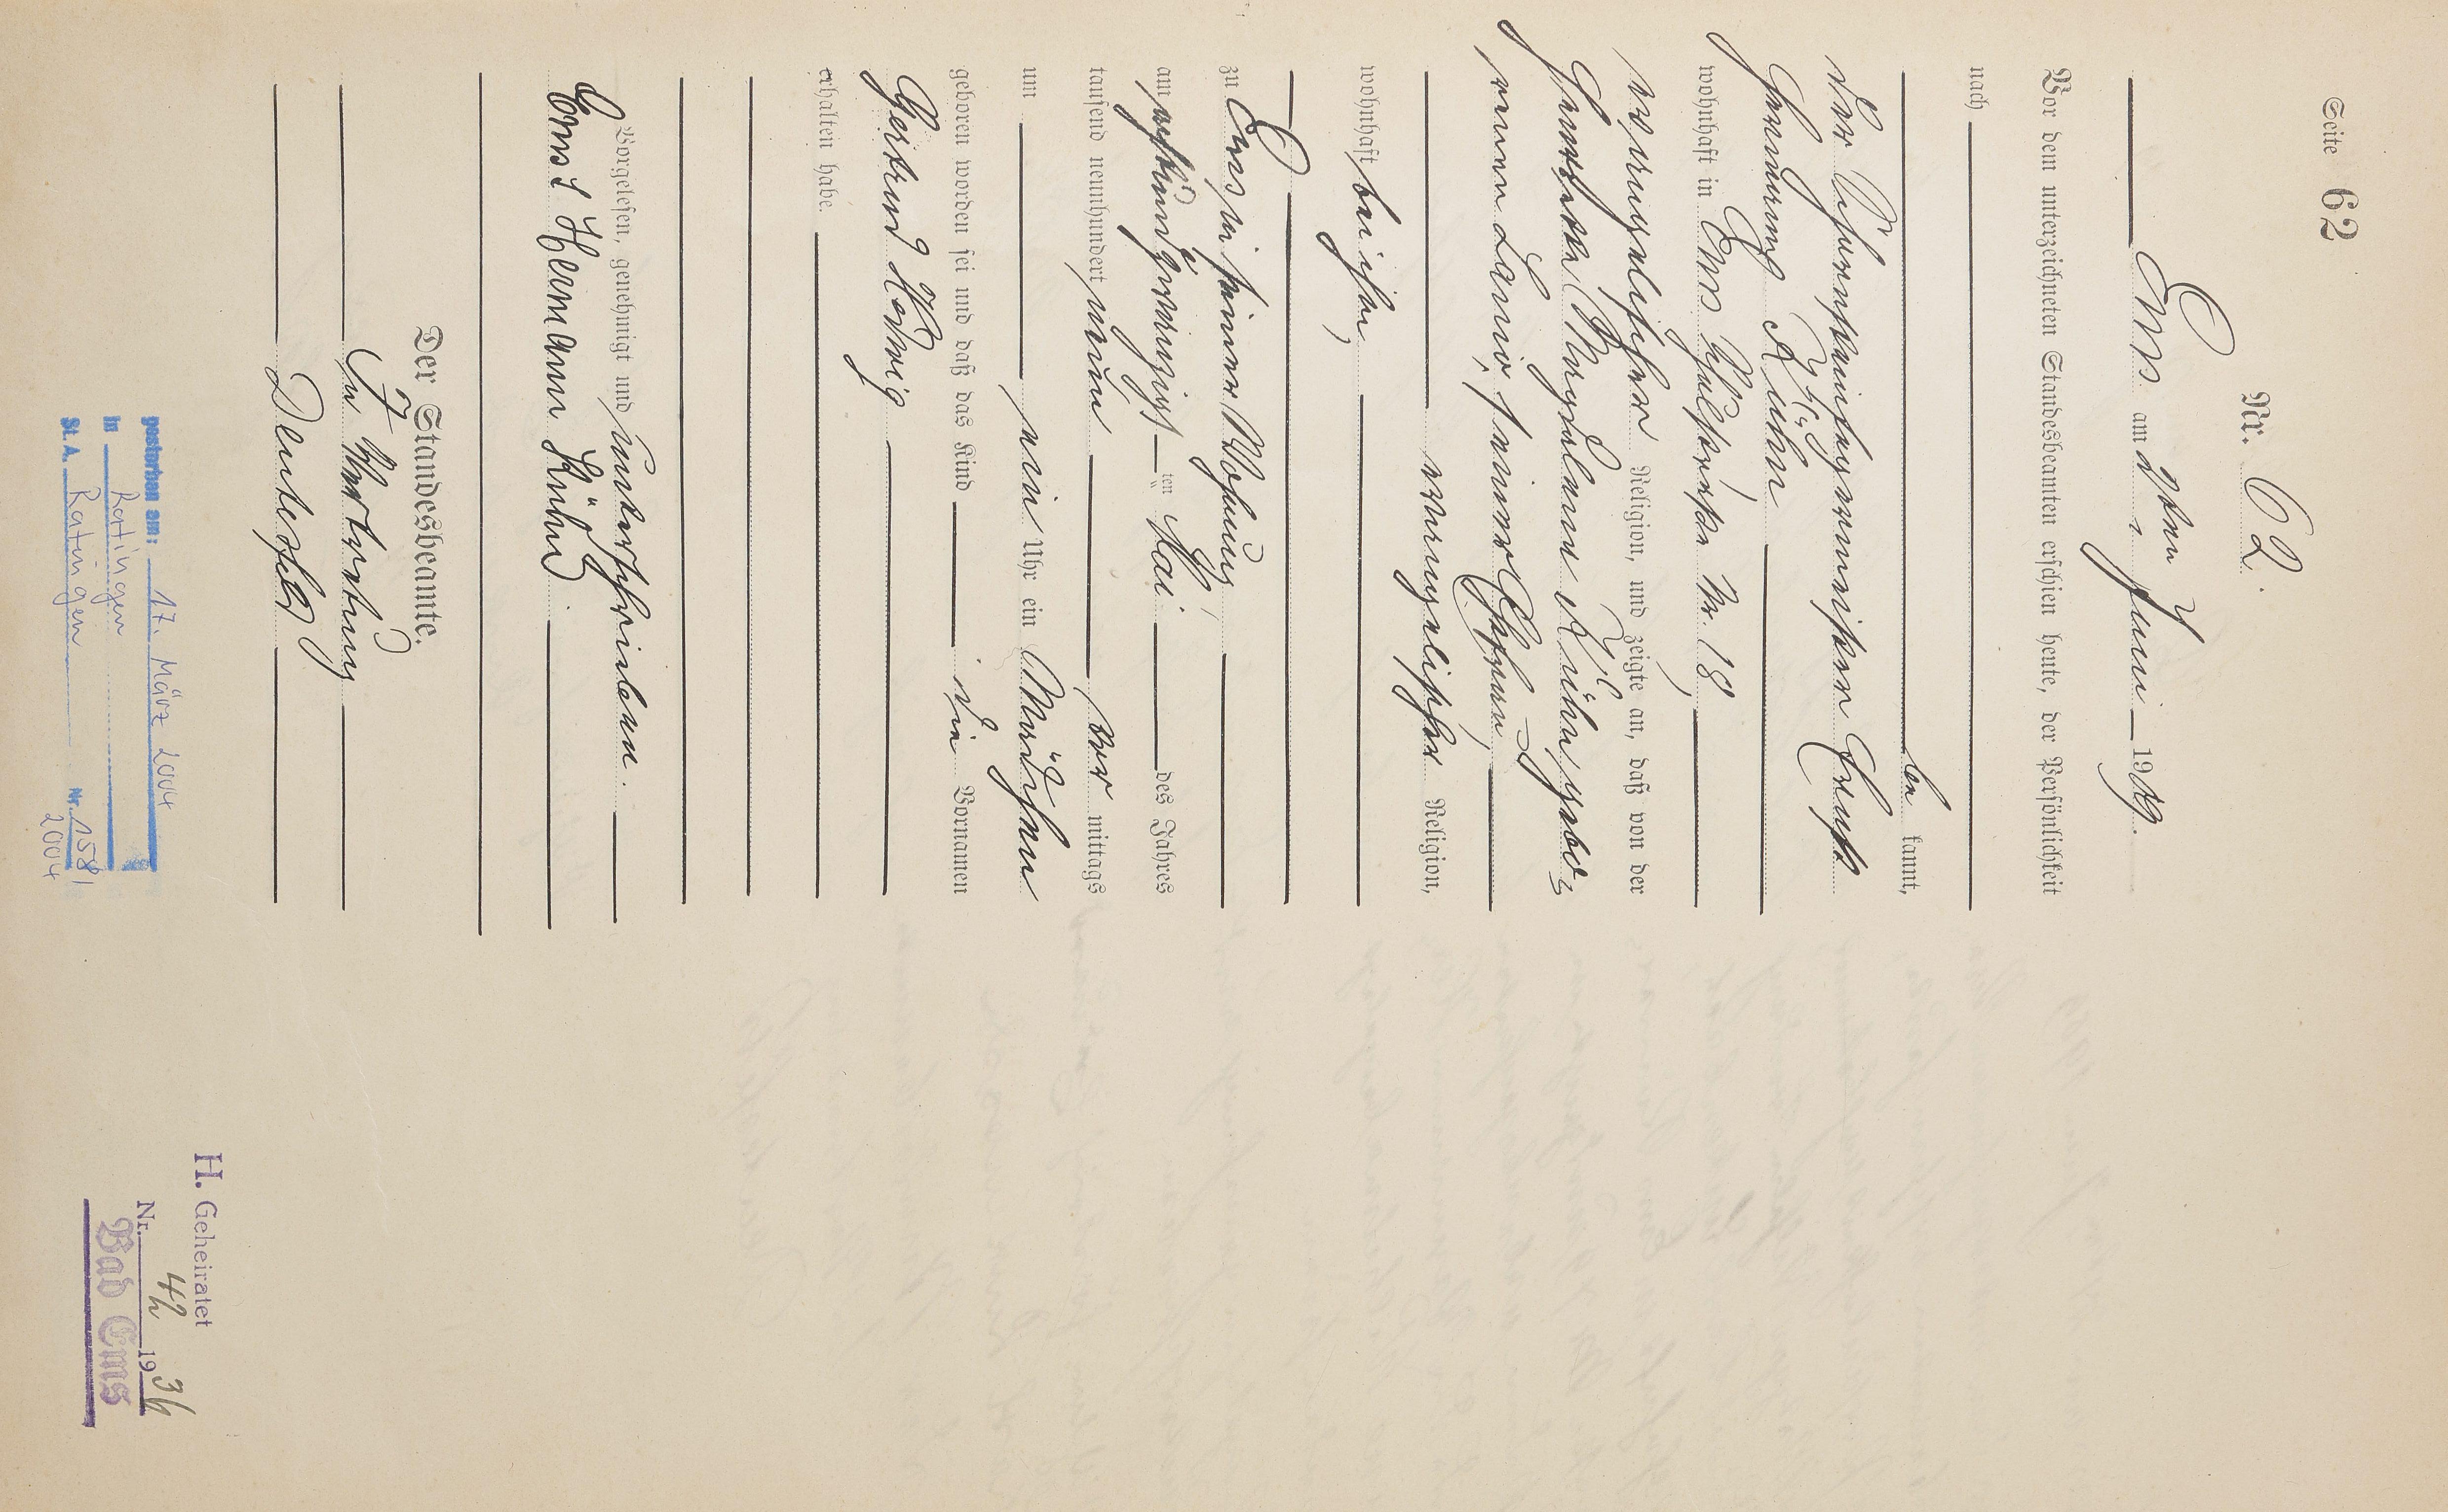 Seite 62
Nr. 62.
Ems am 2ten Juni 1909.
Vor dem unterzeichneten Standesbeamten erschien heute, der Persönlichkeit
nach
be kannt,
der Ernst
Hermann Kühn
wohnhaft in Ems Nr. 18
evangelischer Religion, und zeigte an, daß von der
Kühn gebo-
renen seiner Ehefrau,
evangelischer Religion,
wohnhaft bei ihm,
zu Ems in seiner Wohnung
am achtundzwanzigsten Mai des Jahres
tausend neunhundert neun vor mittags
um ein Uhr ein Mädchen
geboren worden sei und daß das Kind die Vornamen
Gertrud Hedwig
erhalten habe.
Vorgelesen, genehmigt und unterschrieben.
Ernst Hermann Kühn
Der Standesbeamte.
In Vertretung
gestorben am: 17. März 2004
in Ratingen
St. A. Ratingen Nr. 158/
2004
H. Geheiratet
Nr. 42 1936
Bad Ems